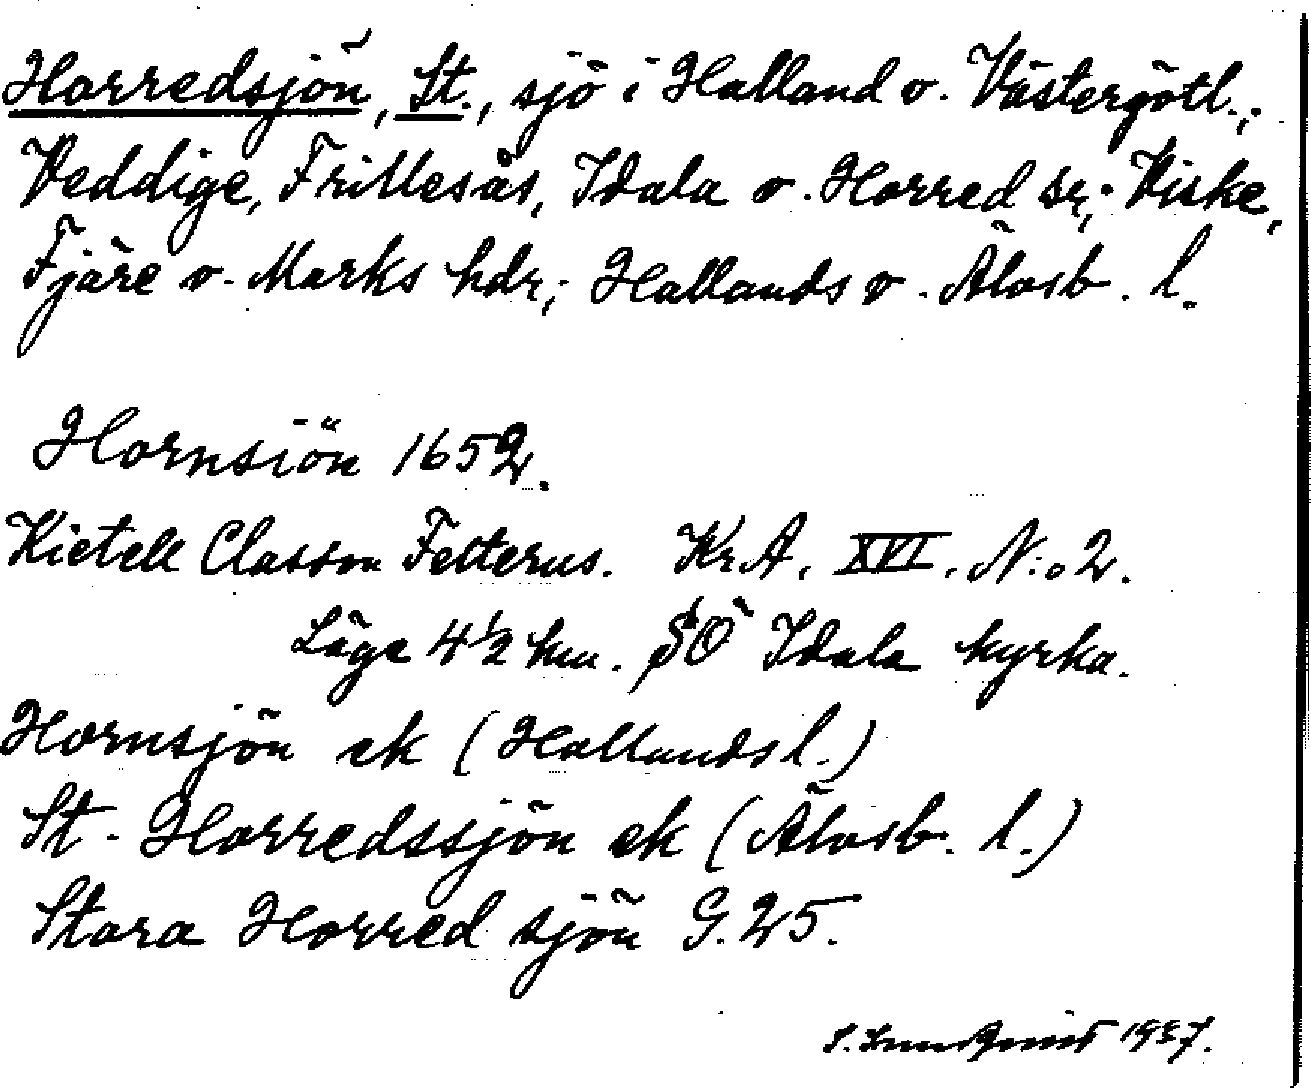 Horredsjön, St., sjö i Halland o. Västergötl.;
Veddige, Frillesås, Idala o. Horred sr; Viske,
Fjäre o. Marks hdr; Hallands o. Älvsb. l.
Hornsiön 1652.
Kietell Classon Felterus. Kr.A. XVI. N:o 2.
Läge 4 1/2 km. SÖ Idala kyrka.
Hornsjön ek (Hallands l.)
St. Horredssjön ek (Älvsb. l.)
Stora Horred sjön G. 25.
1937.